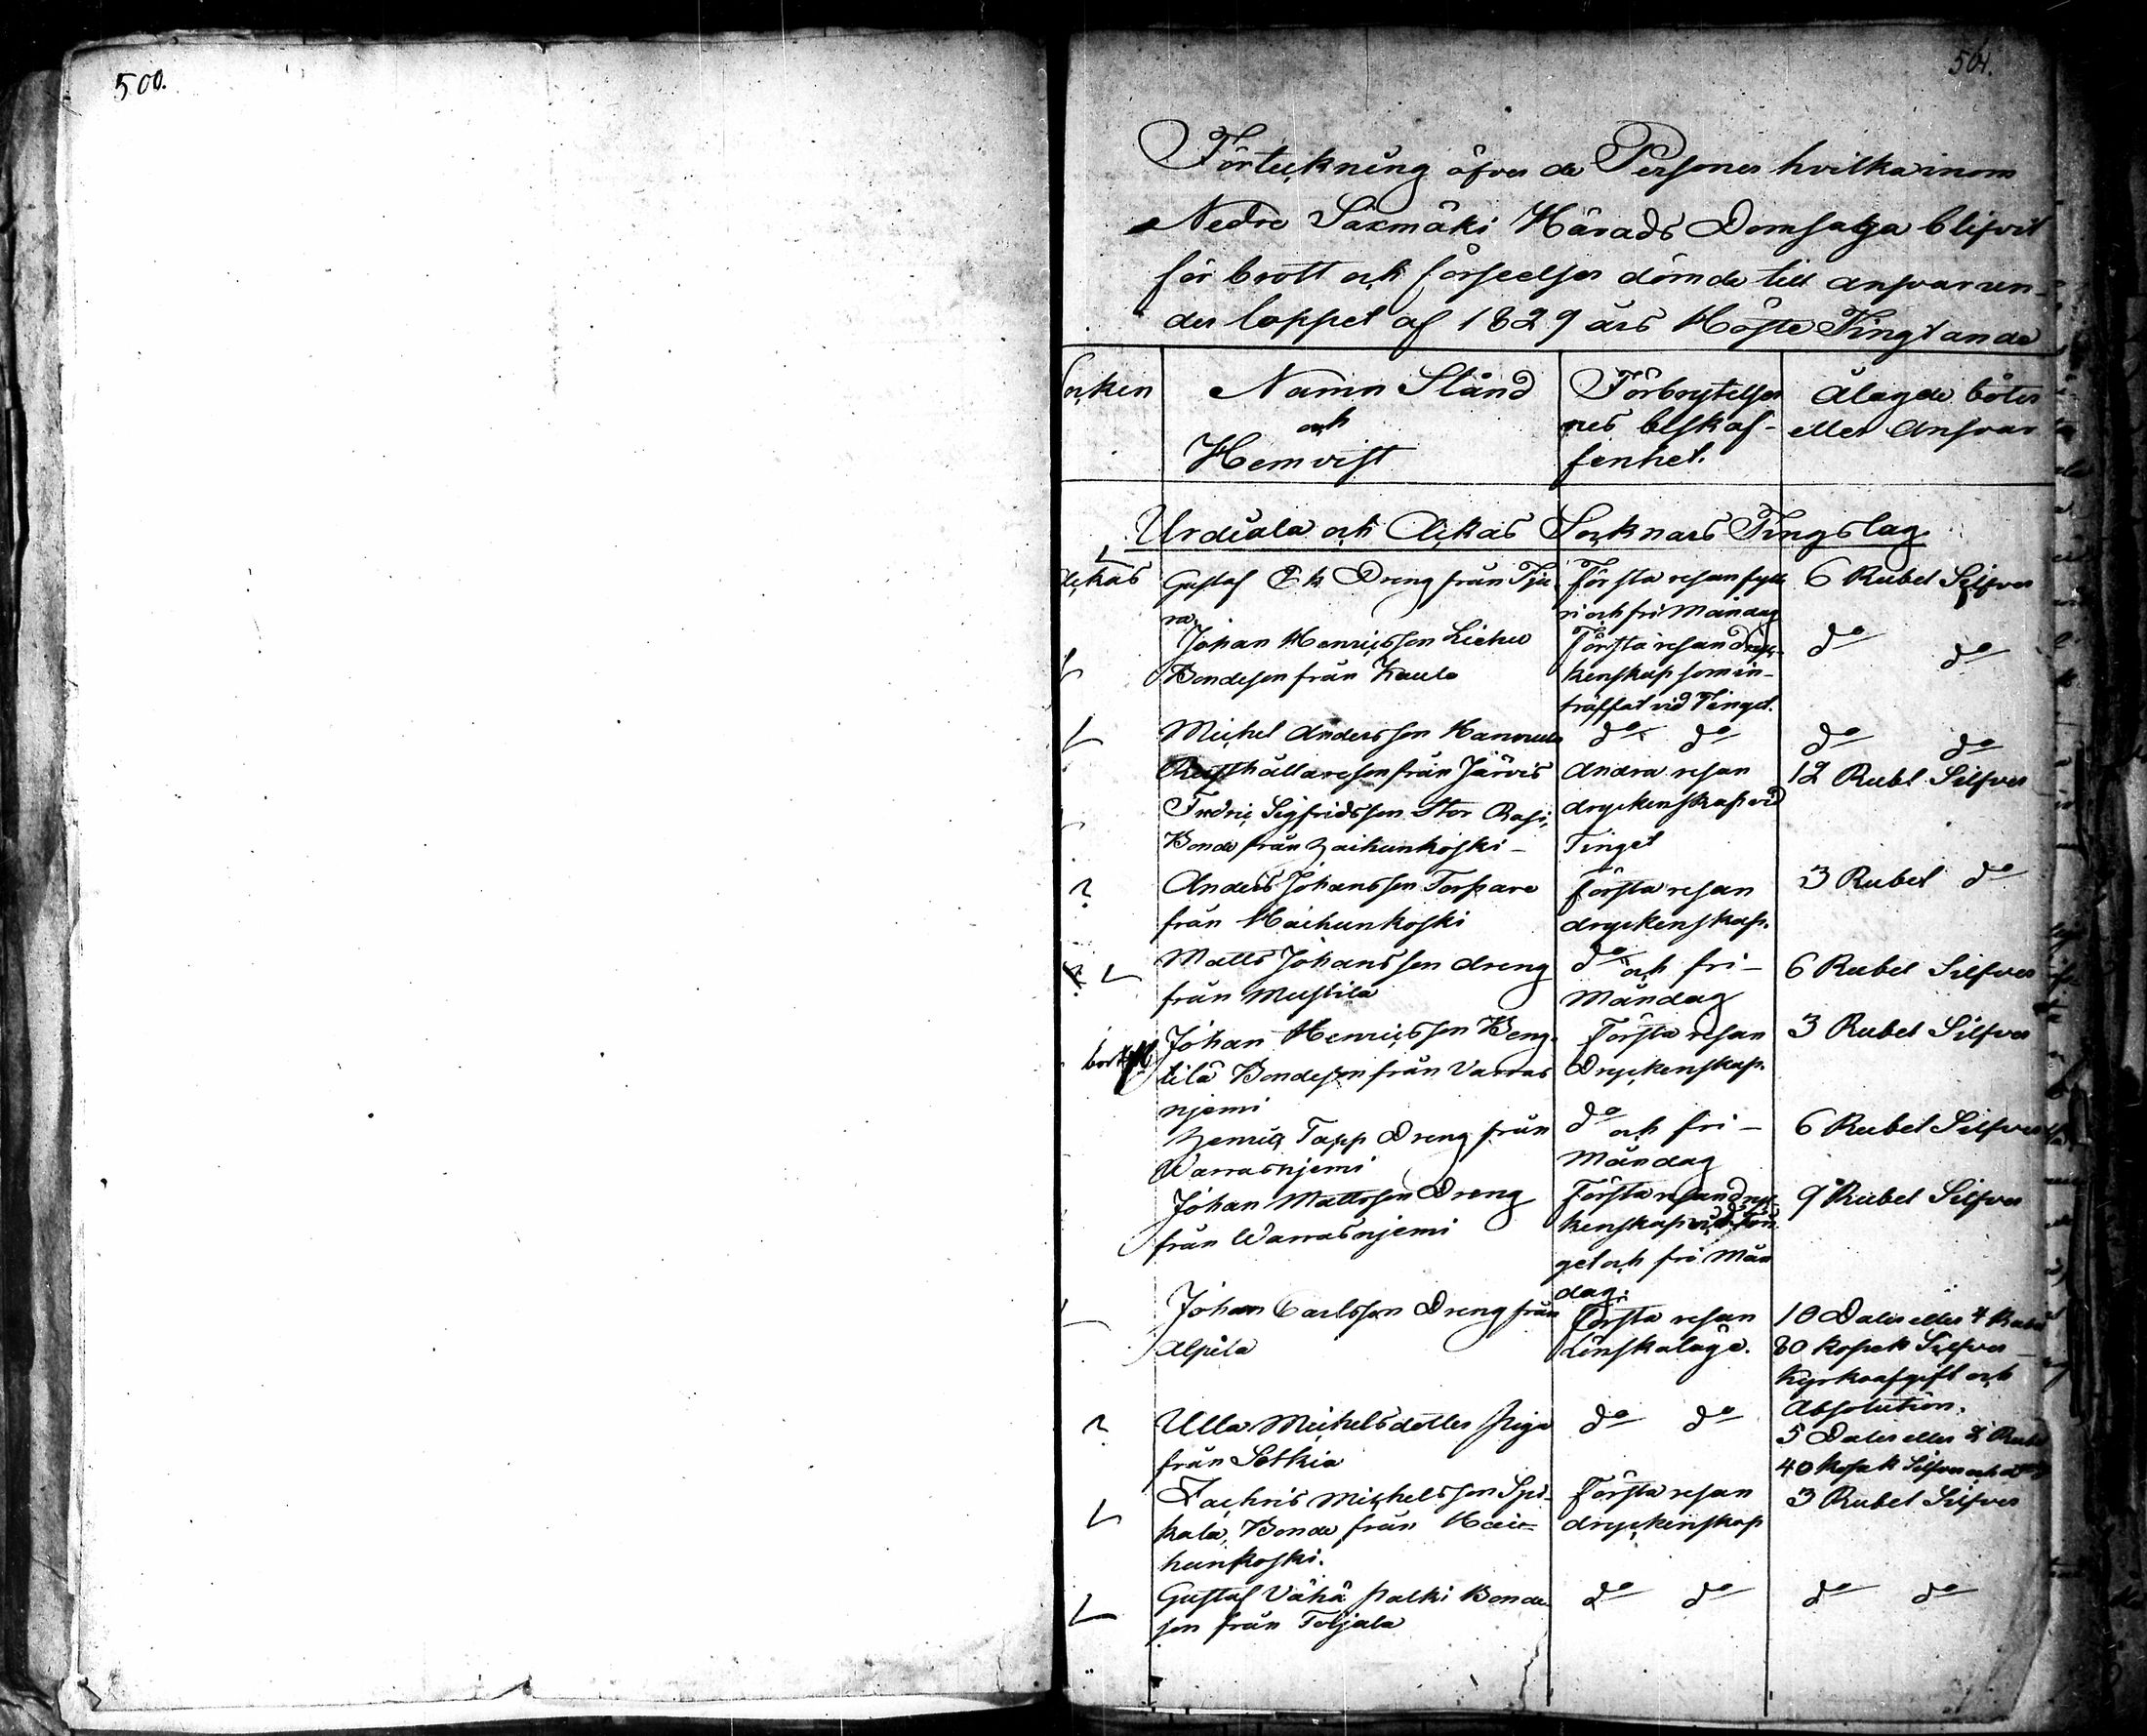 500.
501.
Förteckning öfver de Personer hvilka inom
Nedre Säxmäki Härads Domsaga blifvit
för brott och förseelser dömde till ansvar un-
der loppet af 1829 års Höste Tingtande
Socken
Namn Stånd
och
Hemvist
Förbrytelser
nes beskaf-
fenhet.
Ålagde böter
eller Ansvar
Urdiala och Ackas Socknars Tingslag
Ackas
Gustaf Ek Dreng från Tju-
ra,
Första resan fylle
ri och fri Måndag
6 Rubel Silfver
Johan Henricsson Liehu
Bondeson från Kaulo
Första resan dryc-
kenskap som in-
träffat vid Tinget.
do do
Michel Andersson Hannula
Rusthållareson från Järvis
do do
do do
Fredric Sigfridsson Stor Rasi,
Bonde från Haihunkoski -
Andra resan
dryckenskap vid
Tinget
12 Rubl Silfver
? Anders Johansson Torpare
från Haihunkoski
första resan
dryckenskap.
3 Rubel do
Matts Johansson dreng
från Mustila
do och fri-
Måndag
6 Rubel Silfver
bort
Johan Henricsson Beng-
tilä Bondeson från Varras
njemi
Första resan
Dryckenskap.
3 Rubel Silfver
Henric Tapp Dreng från
Warrasnjemi
do och fri-
Måndag
6 Rubel Silfver
Johan Mattsson Dreng
från Warrasnjemi
Första resan dryc
kenskap vid Tin
get och fri Mån
dag.
9 Rubel Silfver
Johan Carlsson Dreng från
Alpila
första resan
Lönskaläge.
10 Daler eller 4 Rubel
80 kopek Silfver
Kyrkoafgift och
Absolution.
? Ulla Michelsdotter piga
från Sotkia
do do
5 Daler eller 2 Rubel
40 kopek Silfver och do
Zachris Michelsson Spi-
kala, Bonde från Hai-
hunkoski.
första resan
dryckenskap
3 Rubel Silfver
Gustaf Vähä palki Bonde
son från Toljala
do do
do do